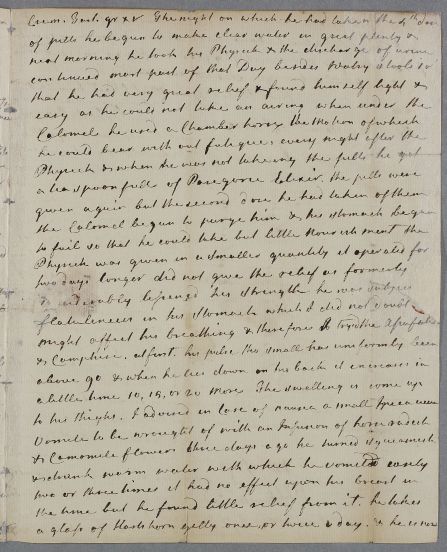 Crem. Tart. gr xv The night on which he had taken the 4th dose
of pills he began to make clear water in great plenty &
next morning he took his Physick & the discharge of urine
continued most part of that Day besides watry stools so
that he had very great relief & found himself light &
easy as he could not take an airing when under the
Calomel he used a Chamber horse the Motion of which
he could bear with out fatigue; every night after the
Physick & when he was not takeing the pills he got
a teaspoonfull of Paregoric Elixir. the pills were
given again but the second dose he had taken of them
the Calomel began to purge him & his stomach began
to fail so that he could take but little nourishment the
Physick was given in a smaller quantity it operated for
two days longer did not give the relief as formerly
& sensibly lessened his strength he was subject
flatulencies in his stomach which I did not doubt
might affect his breathing & therefore try'd the Assafœtida
& Camphire. at first his pulse tho small has uniformly been
above 90 & when he lies down on his back it increases in
a little time 10, 15, or 20 more The swelling is come up
to his thighs. I advised in case of nausea a small Ipecacuan
Vomit to be wrought of with an Infusion of horseradish
& Camomile flowers three days ago he turned squeamish
& drank warm water with which he vomited easily
two or three times it had no effect upon his breast in
the time but he found little relief from it. he takes
a glass of Hartshorn gelly once, or twice a day. & he is now